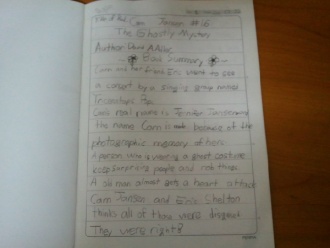 Title of Book Cam Jansen #16
The Ghostly Mystery
Author David A. Adler
Book Summary
Cam and her friend Eric went to see
a consert by a sing is group named
Triceratops Pop.
Cam's real name is Jennifer Jansen and
the name Cam is made because of the
photographic memory of hers.
A person who is wearing a ghost costume
keeps surprising people and rob things.
A old man almost gets a heart attact
Cam Jansen and Eric Shelton
thinks all of those weird
They were right!